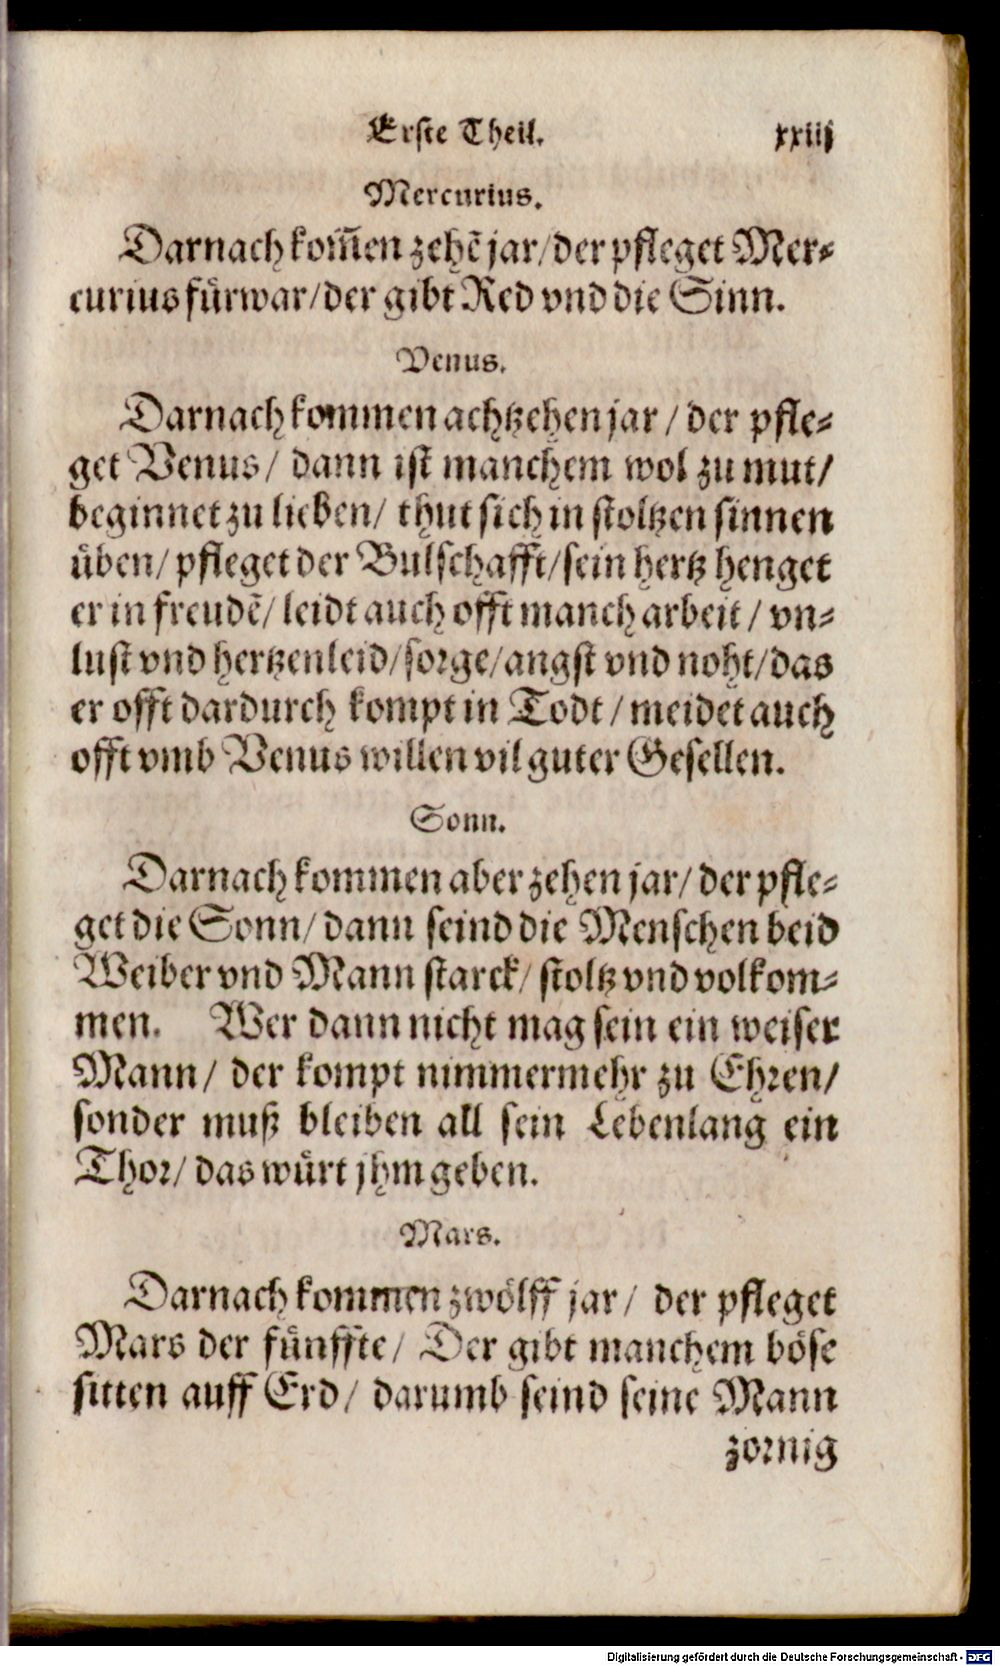 Erste Theil. xxiij
Mercurius.
Darnach kom̃en zehẽ jar/der pfleget Mer-
curius fürwar/der gibt Red vnd die Sinn.
Venus.
Darnach kommen achtzehen jar / der pfle-
get Venus/ dann ist manchem wol zu mut/
beginnet zu lieben/ thut sich in stoltzen sinnen
üben/ pfleget der Bulschafft/sein hertz henget
er in freudẽ/ leidt auch offt manch arbeit / vn-
lust vnd hertzenleid/sorge/angst vnd noht/das
er offt dardurch kompt in Todt / meidet auch
offt vmb Venus willen vil guter Gesellen.
Sonn.
Darnach kommen aber zehen jar/ der pfle-
get die Sonn/ dann seind die Menschen beid
Weiber vnd Mann starck/ stoltz vnd volkom-
men. Wer dann nicht mag sein ein weiser
Mann/ der kompt nimmermehr zu Ehren/
sonder muß bleiben all sein Lebenlang ein
Thor/ das würt jhm geben.
Mars.
Darnach kommen zwölff jar/ der pfleget
Mars der fünffte/ Der gibt manchem böse
sitten auff Erd/ darumb seind seine Mann
zornig
Digitalisierung gefördert durch die Deutsche Forschungsgemeinschaft - DFG